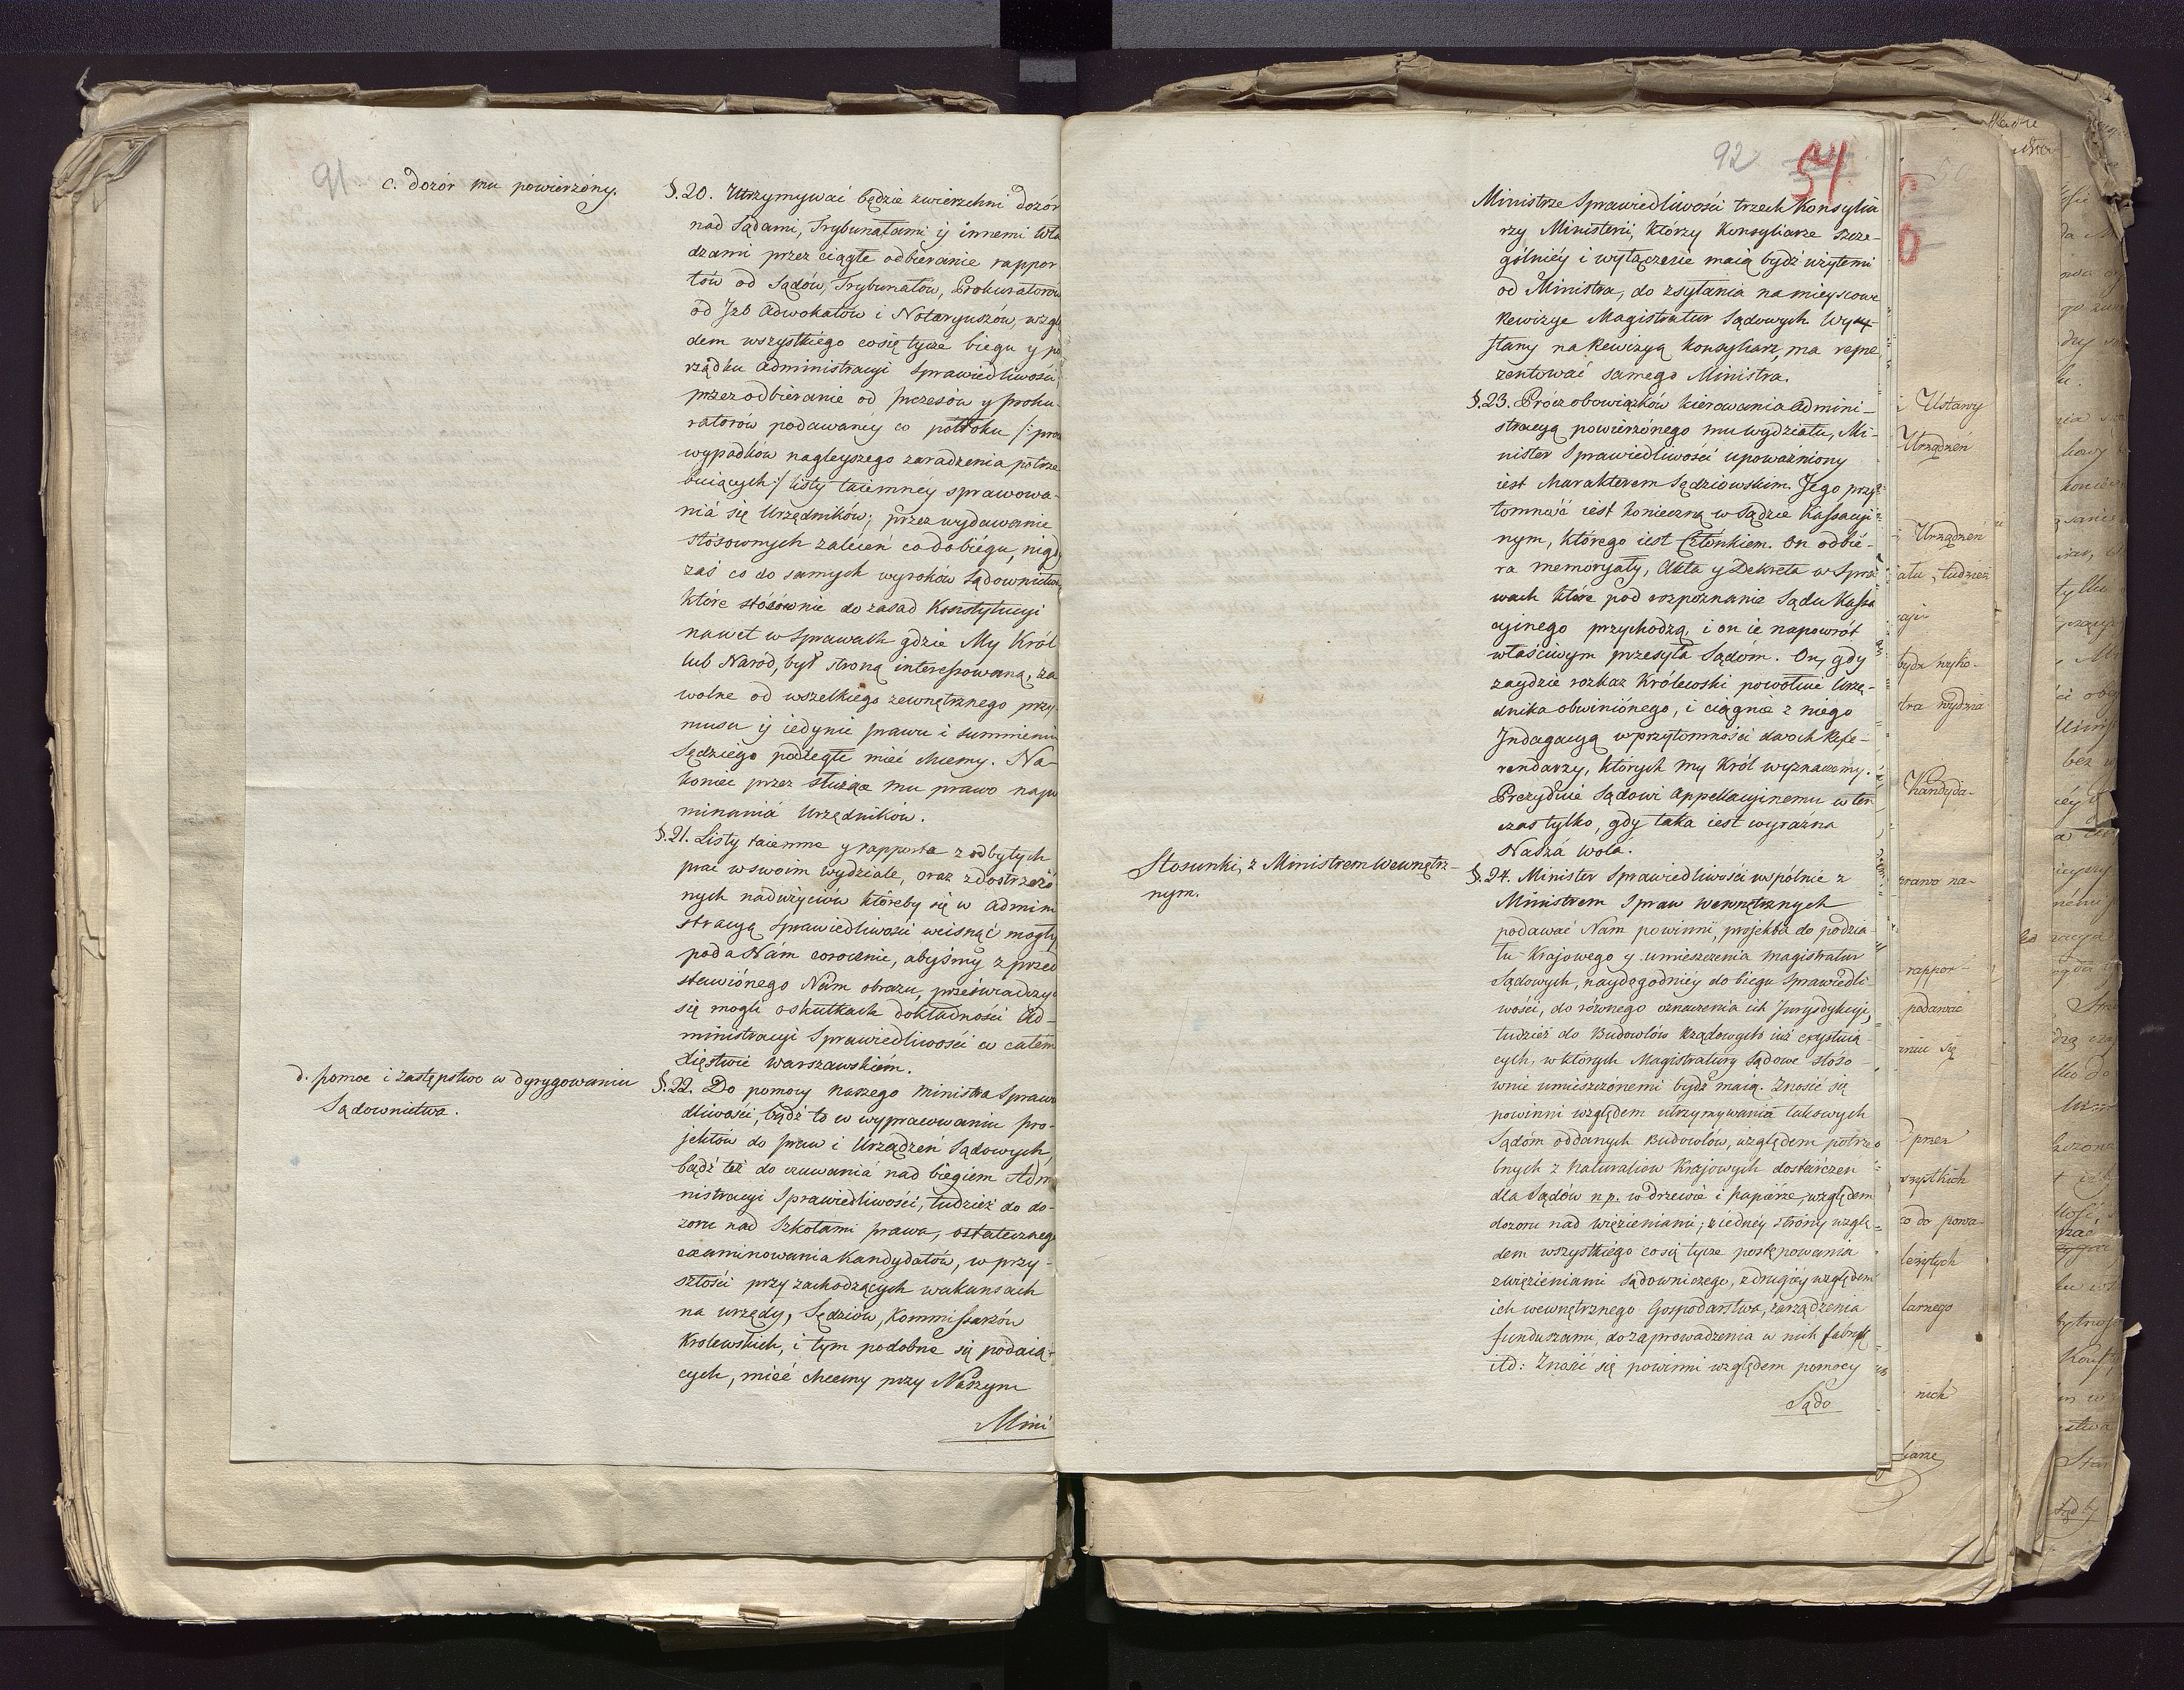 91
c. dozór mu powierzóny.
§. 20. Utrzymywać będzie zwierzchni dozór
nad Sądami, Trybunałami y innemi Wła
dzami przez ciągłe odbieranie rappor
tów od Sądów, Trybunałów, Prokuratorów
od Jzb Adwokatów i Notaryuszów, wzglę
dem wszystkiego co się tycze biegu y po
rządku Administracyi Sprawiedliwości,
przez odbieranie od prezesów y proku-
ratorów podawanéy co półroku /: prócz
wypadków nagleyszego zaradzenia potrze
buiących :/ listy taiemnéy sprawowa-
niá się Urzędników; przez wydawanie
stósownych zaleceń co do biégu, nigdy
zaś co do samych wyroków Sądownictwa,
które stósównie do zasad Konstytucyi
nawet w Sprawach gdzie My Król
lub Naród, był stroną interessowaną, za
wolne od wszelkiego zewnętrznego przy-
musu y iedynie prawu i summieniu
Sędziego podległe mieć chcemy. Na-
koniec przez służące mu prawo napo
minaniá Urzędników.
§. 21. Listy taiemne y rapporta z odbytych
prac w swoim wydziale, oraz zdostrzeżó
nych nadużyciów któreby się w Admini
stracyą Sprawiedliwości wcisnąć mogły
poda Nám corocznie, abyśmy z przed
stawiónego Nám obrazu, przeświadczyć
się mogli o skutkach dokładności Ad-
ministracyi Sprawiedliwości w całém
Xięstwie Warszawskiém.
d. pomoc i zastępstwo w dyrygowaniu
Sądownictwa.
§. 22. Do pomocy naszego Ministra Sprawie
dliwości, bądź to w wypracowaniu pro-
jektów do praw i Urządzeń Sądowych,
bądź też do czuwaniá nad biegiem Admi
nistracyi Sprawiedliwości, tudzież do do-
zoru nad Szkołami prawa, ostatecznego
examinowania Kandydatów, w przy-
szłości przy zachodzących wakansach
na urzędy, Sędziów, Kommissarzów
Krolewskich, i tym podobne się podaią-
cych, mieć chcemy przy Naszym
Mini
92
51
Ministrze Sprawiedliwości trzech Konsylia
rzy Ministerii, którzy Konsyliarze szcze-
gólniéy i wyłącznie maią bydź użytemi
od Ministra, do zsyłania na mieyscowe
Rewizye Magistratur Sądowych. Wy-
słany na Rewizyą Konsyliarz, ma repre
zentować samego Ministra.
§. 23. Prócz obowiązków kierowania Admini-
stracyą powierzónego mu wydziału, Mi-
nister Sprawiedliwości upoważniony
iest Charakterem Sędziowskim. Jego przy-
tomność iest konieczną w Sądzie Kassacyi-
nym, którego iest Członkiem. On odbié-
ra memoryały, Akta y Dekreta w Spra
wach które pod rozpoznanie Sądu Kassa
cyinego przychodzą, i on ie napowrót
właściwym przesyła Sądóm. On, gdy
zaydzie rozkaz Królewski powołuie Urzę-
dnika obwiniónego, i ciągnie z niego
Jndagacyą w przytomności dwóch Refe-
rendarzy, których my Król wyznaczemy.
Prezyduie Sądowi Appellacyinemu w ten
czas tylko, gdy taka iest wyraźna
Naszá wola.
Stosunki, z Ministrem Wewnętrz-
nym.
§. 24. Minister Sprawiedliwości wspólnie z
Ministrem Spraw wewnętrznych
podawać Nám powinni, projekta do podzia
łu Krajowego y umieszczenia magistratur
Sądowych, naydogodniéy do biegu Sprawiedli
wości, do równego oznaczenia ich Jurysdykcyi,
tudzież do Budowlów Rządowych iuż exystuią
cych, w których Magistratury Sądowe stóso-
wnie umieszczónemi bydź maią. Znosić się
powinni względem utrzymywania takowych
Sądóm oddanych Budowlów, względem potrze
bnych z Naturaliów Krajowych dostárczeń
dla Sądów np. w drzewie i papiérze, względem
dozoru nad więzieniami; z iednéy stróny wzglę-
dem wszystkiego co się tycze postępowania
z więzieniami sądowniczego, z drugiéy względem
ich wewnętrznego Gospodarstwa, zarządzenia
funduszami, do zaprowadzenia w nich fabryk
itd: Znosić się powinni względem pomocy
Sądo
Ustawy
Urządzeń
Urządzeń
tudzież
wydzia
Kandyda-
prawo na-
rappor-
podawać
się
przez
wszystkich
co do powa-
nich